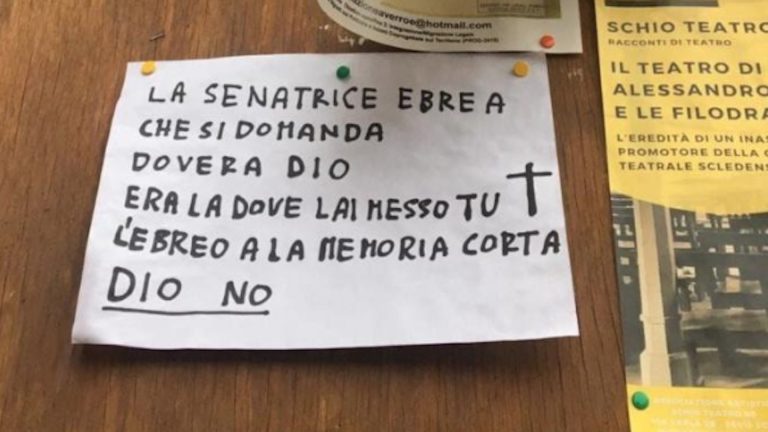 averroe@hotmail.com
LA SENATRICE EBREA
CHE SI DOMANDA
DOVERA DIO
ERA LA DOVE LAI MESSO TU
L'EBREO A LA MEMORIA CORTA
DIO NO
SCHIO TEATRO
RACCONTI DI TEATRO
IL TEATRO DI
ALESSANDRO
E LE FILODRA
L'EREDITÀ DI UN INAS
PROMOTORE DELLA C
TEATRALE SCLEDENS
ASSOCIAZIONE ARTISTIC
SCHIO TEATRO